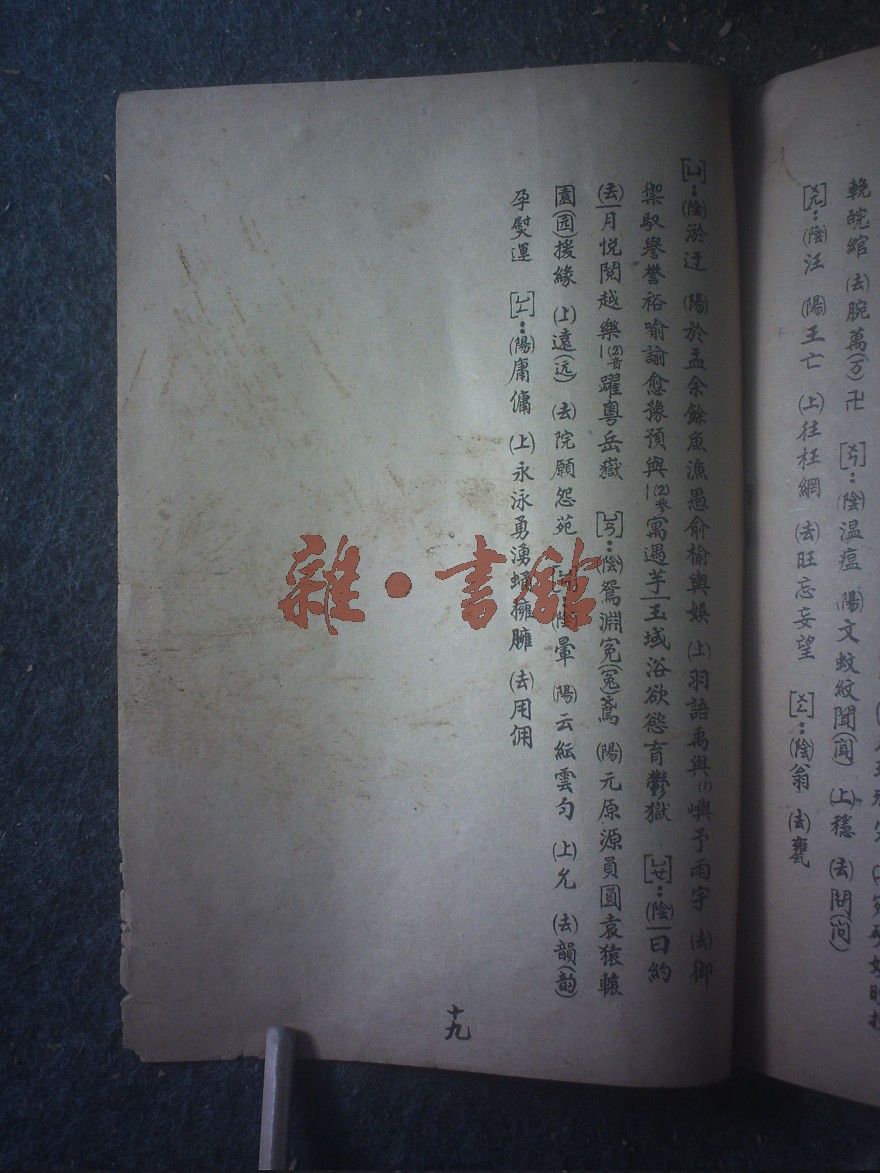 輓皖綰 (去)腕萬(万)卍 [ㄨㄣ]:(陰)溫瘟 (陽)文蚊紋聞(闻) (上)穩 (去)問(问)
[ㄨㄤ]:(陰)汪 (陽)王亡 (上)往枉網 (去)旺忘妄望 [ㄨㄥ]:(陰)翁 (去)甕
[ㄩ]:(陰)淤迂 (陽)於盂余餘魚漁愚俞榆輿娛 (上)羽語禹與(1)嶼予雨宇 (去)御
禦馭譽裕喻諭愈豫預與(2)參寓遇芋|玉域浴欲慾育鬱獄 [ㄩㄝ]:(陰)|曰約
(去)|月悅閱越樂(2)音躍粵岳嶽 [ㄩㄢ]:(陰)鴛淵冤(寃)鳶 (陽)元原源員圓袁猿轅
園(园)援緣 (上)遠(远) (去)院願怨苑 (陰)暈 (陽)云紜雲勻 (上)允 (去)韻(韵)
孕熨運 [ㄩㄥ]:(陽)庸傭 (上)永泳勇湧蛹擁臃 (去)用佣
十九
雜·書館